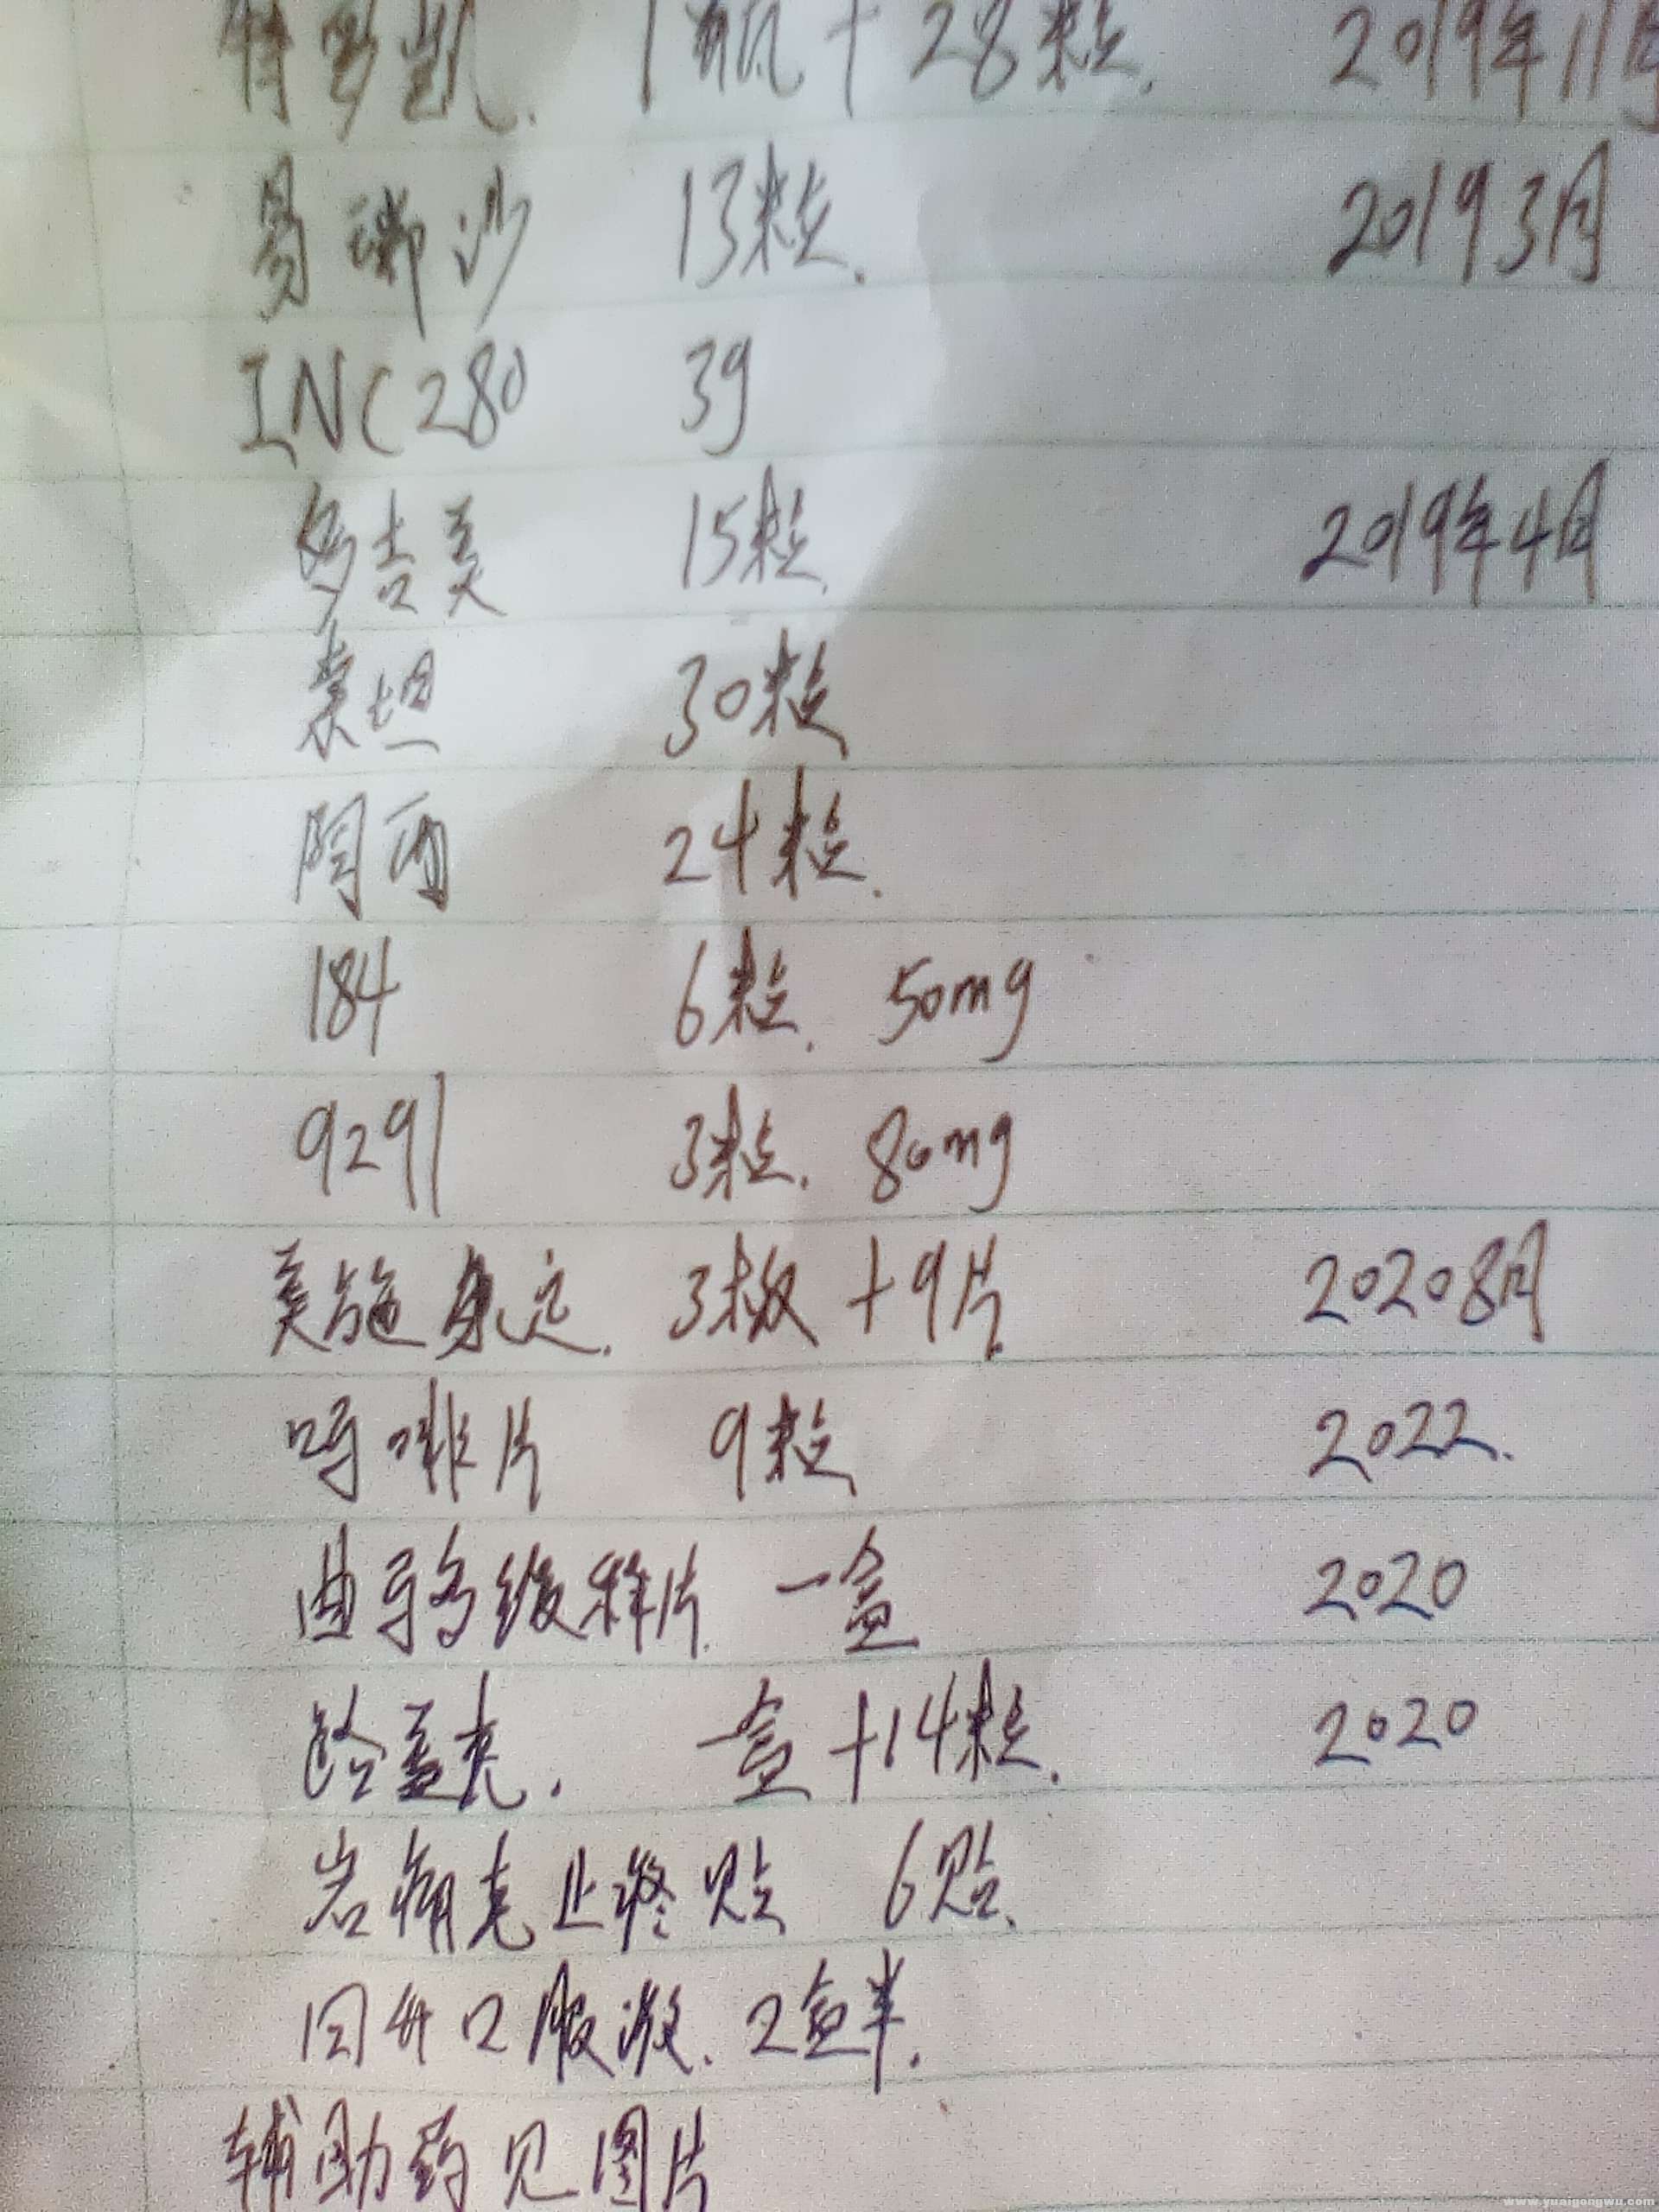 特罗凯. 1瓶+28粒. 2019年11月
易瑞沙 13粒. 2019 3月
INC280 39
多吉美 15粒. 2019年4月
泰坦 30粒
阿西 24粒.
184 6粒. 50mg
9291 3粒. 80mg
美施康定. 3板+9片 2020 8月
吗啡片 9粒 2022.
曲马多缓释片. 一盒 2020
一盒+14粒. 2020
止疼贴 6贴.
口服液. 2盒半.
辅助药见图片
www.yuaigongwu.com